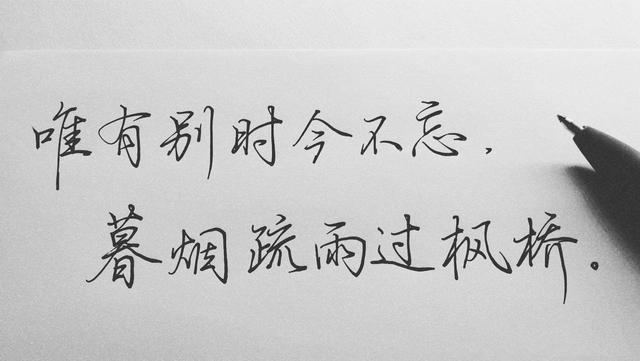 唯有别时今不忘，
暮烟疏雨过枫桥。